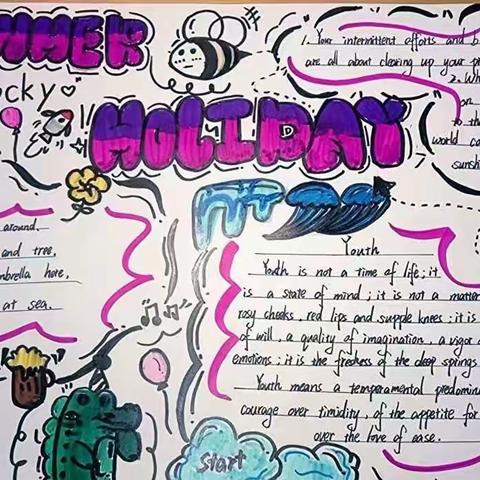 MMER
cky
HOLIDAY
1. Your intermittent efforts and
are all about clearing up your
2. Wh
on
to th
world ca
sunsh
around.
and tree,
mbrella here,
at sea.
Youth
Youth is not a time of life; it
is a state of mind; it is not a matter
rosy cheeks, red lips and supple knees; it is
of will, a quality of imagination, a vigor
emotions; it is the freshness of the deep springs
Youth means a temperamental predomin
courage over timidity, of the appetite for
over the love of ease.
Start